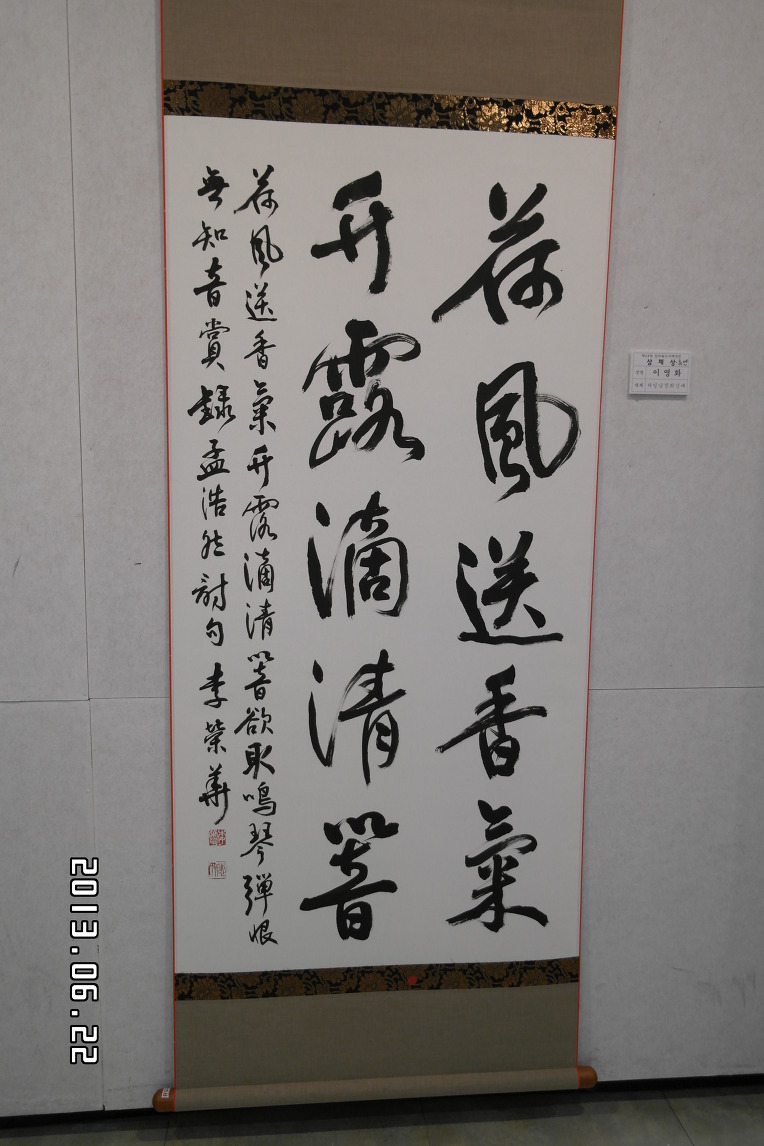 荷風送香氣
竹露滴清響
荷風送香氣竹露滴清響欲取鳴琴彈恨
無知音賞 錄孟浩然詩句 李榮華
삼체상
이영화
2013.06.22